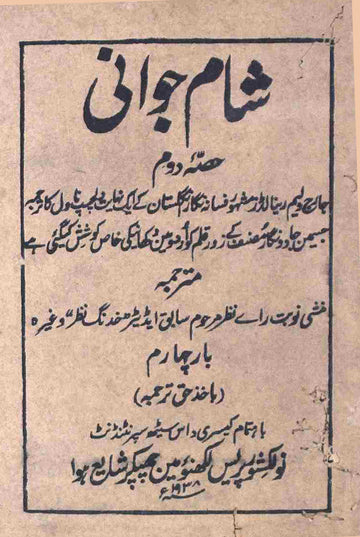 شام جوانی
حصہ دوم
جارج ولیم رینالڈز مشہور فسانہ نگار انگلستان کے ایک نہایت دلچسپ ناول کا ترجمہ
جسمین جادو نگار مصنف کے زور قلم کو اردو مین دکھانیکی خاص کوشش کیگئی ہے
مترجمہ
منشی نوبت رائے نظر مرحوم سابق ایڈیٹر "خدنگ نظر" وغیرہ
بار چہارم
(باخذ حق ترجمہ)
باہتمام کیسری داس سیٹھ سپرنٹنڈنٹ
نولکشور پریس لکھنؤ مین چھپکر شایع ہوا
۱۹۳۸ء